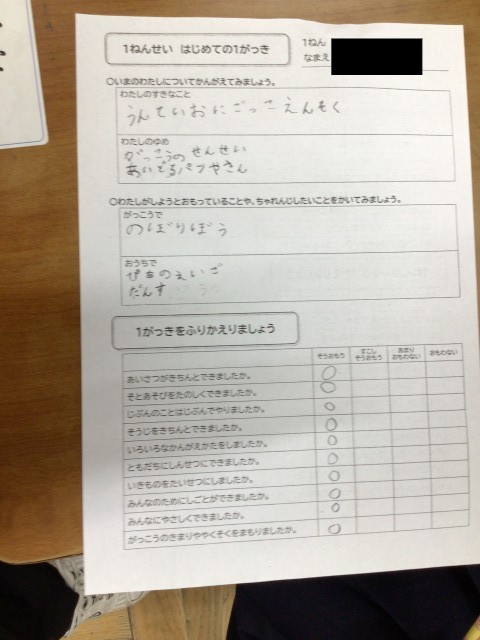 1ねんせい はじめての1がっき
1ねん
なまえ
○いまのわたしについてかんがえてみましょう。
わたしのすきなこと
うんていおにごっこえんそく
わたしのゆめ
がっこうのせんせい
あいどるパフやさん
○わたしがしようとおもっていることや、ちゃれんじしたいことをかいてみましょう。
がっこうで
のぼりぼう
おうちで
ぴあのえいご
だんす
1がっきをふりかえりましょう
そうおもう すこしそうおもう あまりおもわない おもわない
あいさつがきちんとできましたか。
そとあそびをたのしくできましたか。
じぶんのことはじぶんでやりましたか。
そうじをきちんとできましたか。
いろいろなかんがえかたをしましたか。
ともだちにしんせつにできましたか。
いきものをたいせつにしましたか。
みんなのためにしごとができましたか。
みんなにやさしくできましたか。
がっこうのきまりややくそくをまもりましたか。